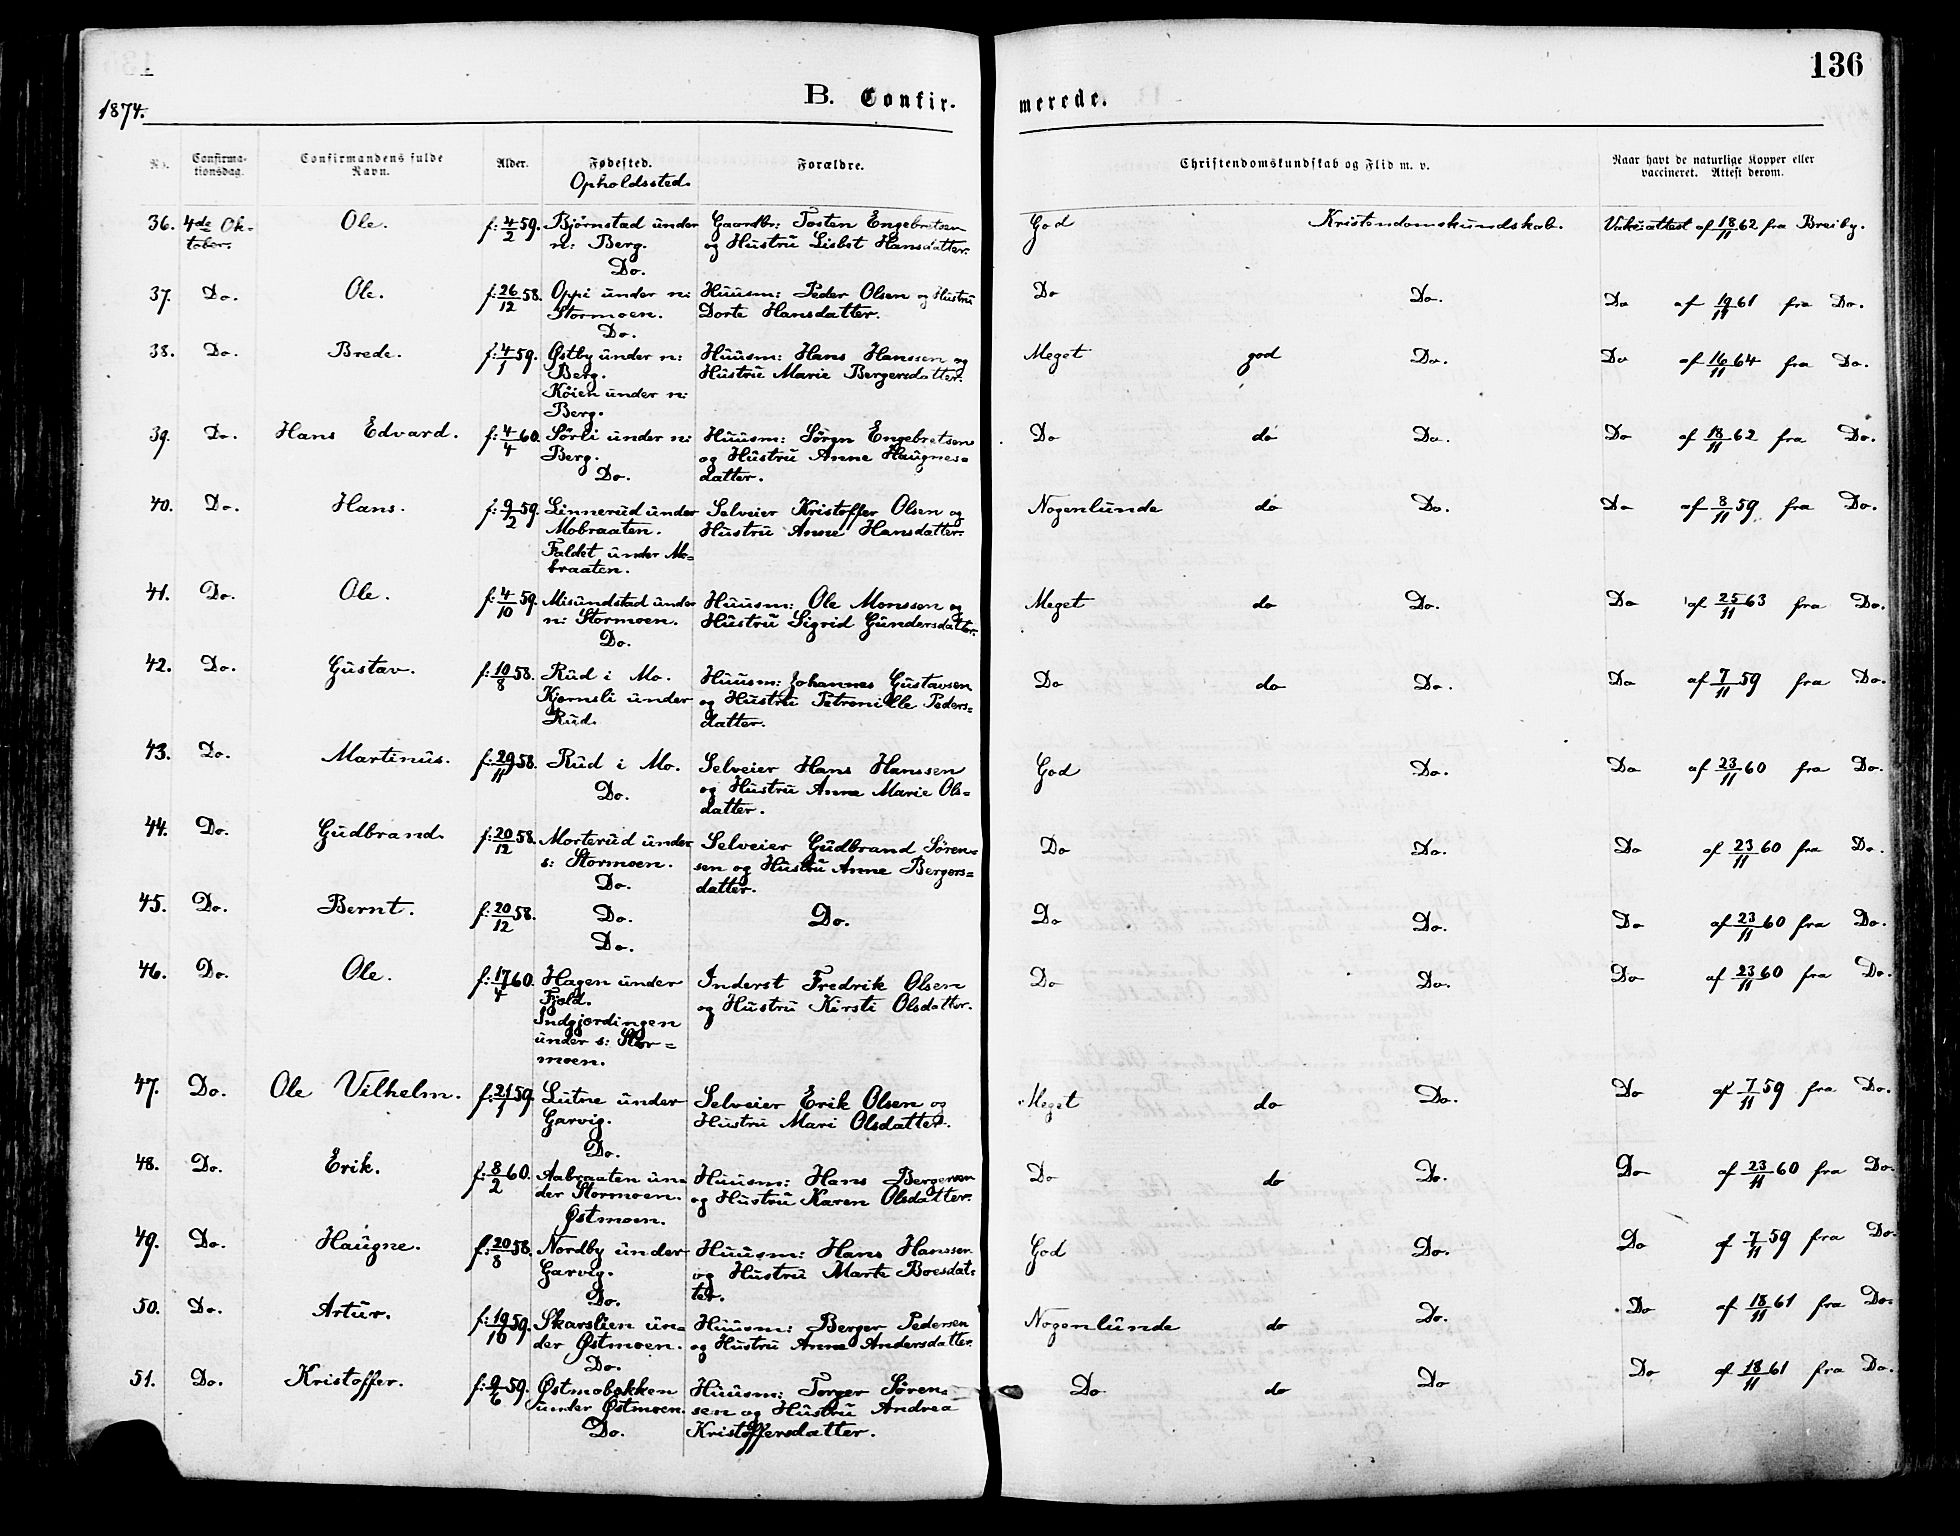 136
1874.
B. Confir- merede.
No. Confirma-tionsdag. Confirmandens fulde Navn. Alder. Fødested. Opholdssted. Forældre. Christendomskundskab og Flid m. v. Naar havt de naturlige Kopper eller vaccineret. Attest derom.
36. 4de Ok- Ole. f: 4/2 59. Bjørnstad under Gaardbr: Tosten Engebretsen God Kristendomskundskab. af 18/11 62 fra Breiby.
tober. n: Berg. og Hustru Lisbet Hansdatter.
Do.
37. Do. Ole. f: 26/12 58. Oppi under n: Huusm: Peder Olsen og Hustru Do Do. Do af 19/11 61 fra Do.
Stormoen. Dorte Hansdatter.
Do.
38. Do. Brede. f: 4/1 59. Østby under n: Huusm: Hans Hanssen og Meget god Do. Do af 16/11 64 fra Do.
Berg. Hustru Marie Bergersdatter.
Køien under n:
Berg.
39. Do. Hans Edvard. f: 4/4 60. Sørli under n: Huusm: Søren Engebretsen Do do Do. Do af 18/11 62 fra Do.
Berg. og Hustru Anne Haugnes=
Do. datter.
40. Do. Hans. f: 9/2 59. Linnerud under Selveier Kristoffer Olsen og Nogenlunde do Do. Do af 8/11 59 fra Do.
Mobraaten. Hustru Anne Hansdatter.
Faldet under Mo=
braaten.
41. Do. Ole. f: 4/10 59. Misundstad under Huusm: Ole Monssen og Meget do Do. Do af 25/11 63 fra Do.
n: Stormoen. Hustru Sigrid Gundersdatter.
Do.
42. Do. Gustav. f: 10/8 58. Rud i Mo. Huusm: Johannes Gustavsen Do do Do. Do af 7/11 59 fra Do.
Kjernsli under og Hustru Petronille Peders=
Rud. datter.
43. Do. Martinus. f: 29/11 58. Rud i Mo. Selveier Hans Hanssen God Do. Do af 23/11 60 fra Do.
Do. og Hustru Anne Marie Ols=
datter.
44. Do. Gudbrand. f: 20/12 58. Morterud under Selveier Gudbrand Søren= Do Do. Do af 23/11 60 fra Do.
s: Stormoen. sen og Hustru Anne Bergers=
Do. datter.
45. Do. Bernt. f: 20/12 58. Do. Do. Do Do. Do af 23/11 60 fra Do.
Do.
46. Do. Ole. f: 17/4 60. Hagen under Inderst Fredrik Olsen Do Do. Do af 23/11 60 fra Do.
Fjeld. og Hustru Kirsti Olsdatter.
Indgjerdingen
under s: Stor=
moen.
47. Do. Ole Vilhelm. f: 21/1 59. Lutne under Selveier Erik Olsen og Meget do Do. Do af 7/11 59 fra Do.
Garvig. Hustru Mari Olsdatter.
Do.
48. Do. Erik. f: 8/2 60. Aabraaten un= Huusm: Hans Bergersen Do do Do. Do af 23/11 60 fra Do.
der Stormoen. og Hustru Karen Olsdatter.
Østmoen.
49. Do. Haugne. f: 20/8 58. Nordby under Huusm: Hans Hanssen God Do. Do af 7/11 59 fra Do.
Garvig. og Hustru Marte Boesdat=
Do. ter.
50. Do. Artur. f: 19/10 59. Skarslien un= Huusm: Berger Pedersen Nogenlunde do Do. Do af 18/11 61 fra Do.
der Østmoen. og Hustru Anne Andersdatter.
Do.
51. Do. Kristoffer. f: 9/6 59. Østmobakken Huusm: Torger Søren= Do do Do Do af 18/11 61 fra Do.
under Østmoen. sen og Hustru Andrea
Do. Kristoffersdatter.